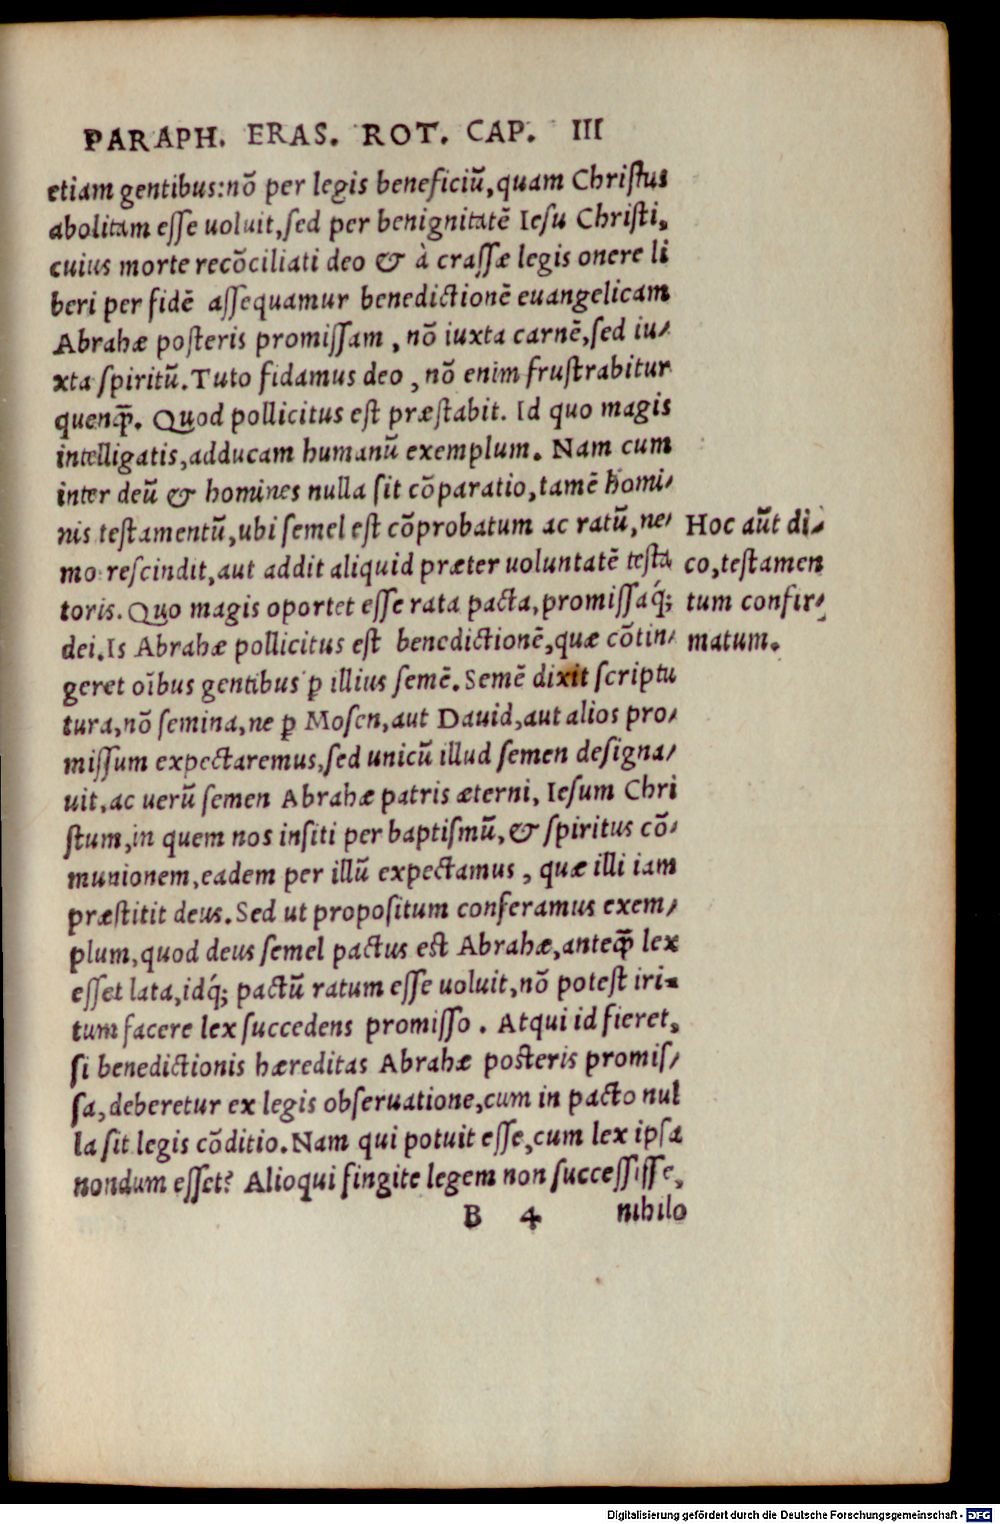 PARAPH. ERAS. ROT. CAP. III
etiam gentibus:nō per legis beneficiū,quam Christus
abolitam esse uoluit,sed per benignitatē Iesu Christi.
cuius morte recōciliati deo & à crassæ legis onere li
beri per fidē assequamur benedictionē euangelicam
Abrahæ posteris promissam , nō iuxta carnē,sed iu-
xta spiritū. Tuto fidamus deo , nō enim frustrabitur
quenq̄. Quod pollicitus est præstabit. Id quo magis
intelligatis,adducam humanū exemplum. Nam cum
inter deū & homines nulla sit cōparatio,tamē homi-
nis testamentū,ubi semel est cōprobatum ac ratū,ne-
mo rescindit,aut addit aliquid præter uoluntatē testa
toris. Quo magis oportet esse rata pacta,promissaq́;
dei. Is Abrahæ pollicitus est benedictionē,quæ cōtin-
geret oībus gentibus ꝑ illius semē. Semē dixit scriptu
tura,nō semina,ne ꝑ Mosen,aut Dauid,aut alios pro-
missum expectaremus,sed unicū illud semen designa-
uit,ac uerū semen Abrahæ patris æterni, Iesum Chri
stum,in quem nos insiti per baptismū, & spiritus cō-
munionem,eadem per illū expectamus , quæ illi iam
præstitit deus. Sed ut propositum conferamus exem-
plum,quod deus semel pactus est Abrahæ,anteq̄ lex
esset lata,idq́; pactū ratum esse uoluit,nō potest iri-
tum facere lex succedens promisso . Atqui id fieret,
si benedictionis hæreditas Abrahæ posteris promis-
sa,deberetur ex legis obseruatione,cum in pacto nul
la sit legis cōditio. Nam qui potuit esse,cum lex ipsa
nondum esset? Alioqui fingite legem non successisse,
B 4 nihilo
Hoc aūt di-
co,testamen
tum confir-
matum.
Digitalisierung gefördert durch die Deutsche Forschungsgemeinschaft - DFG